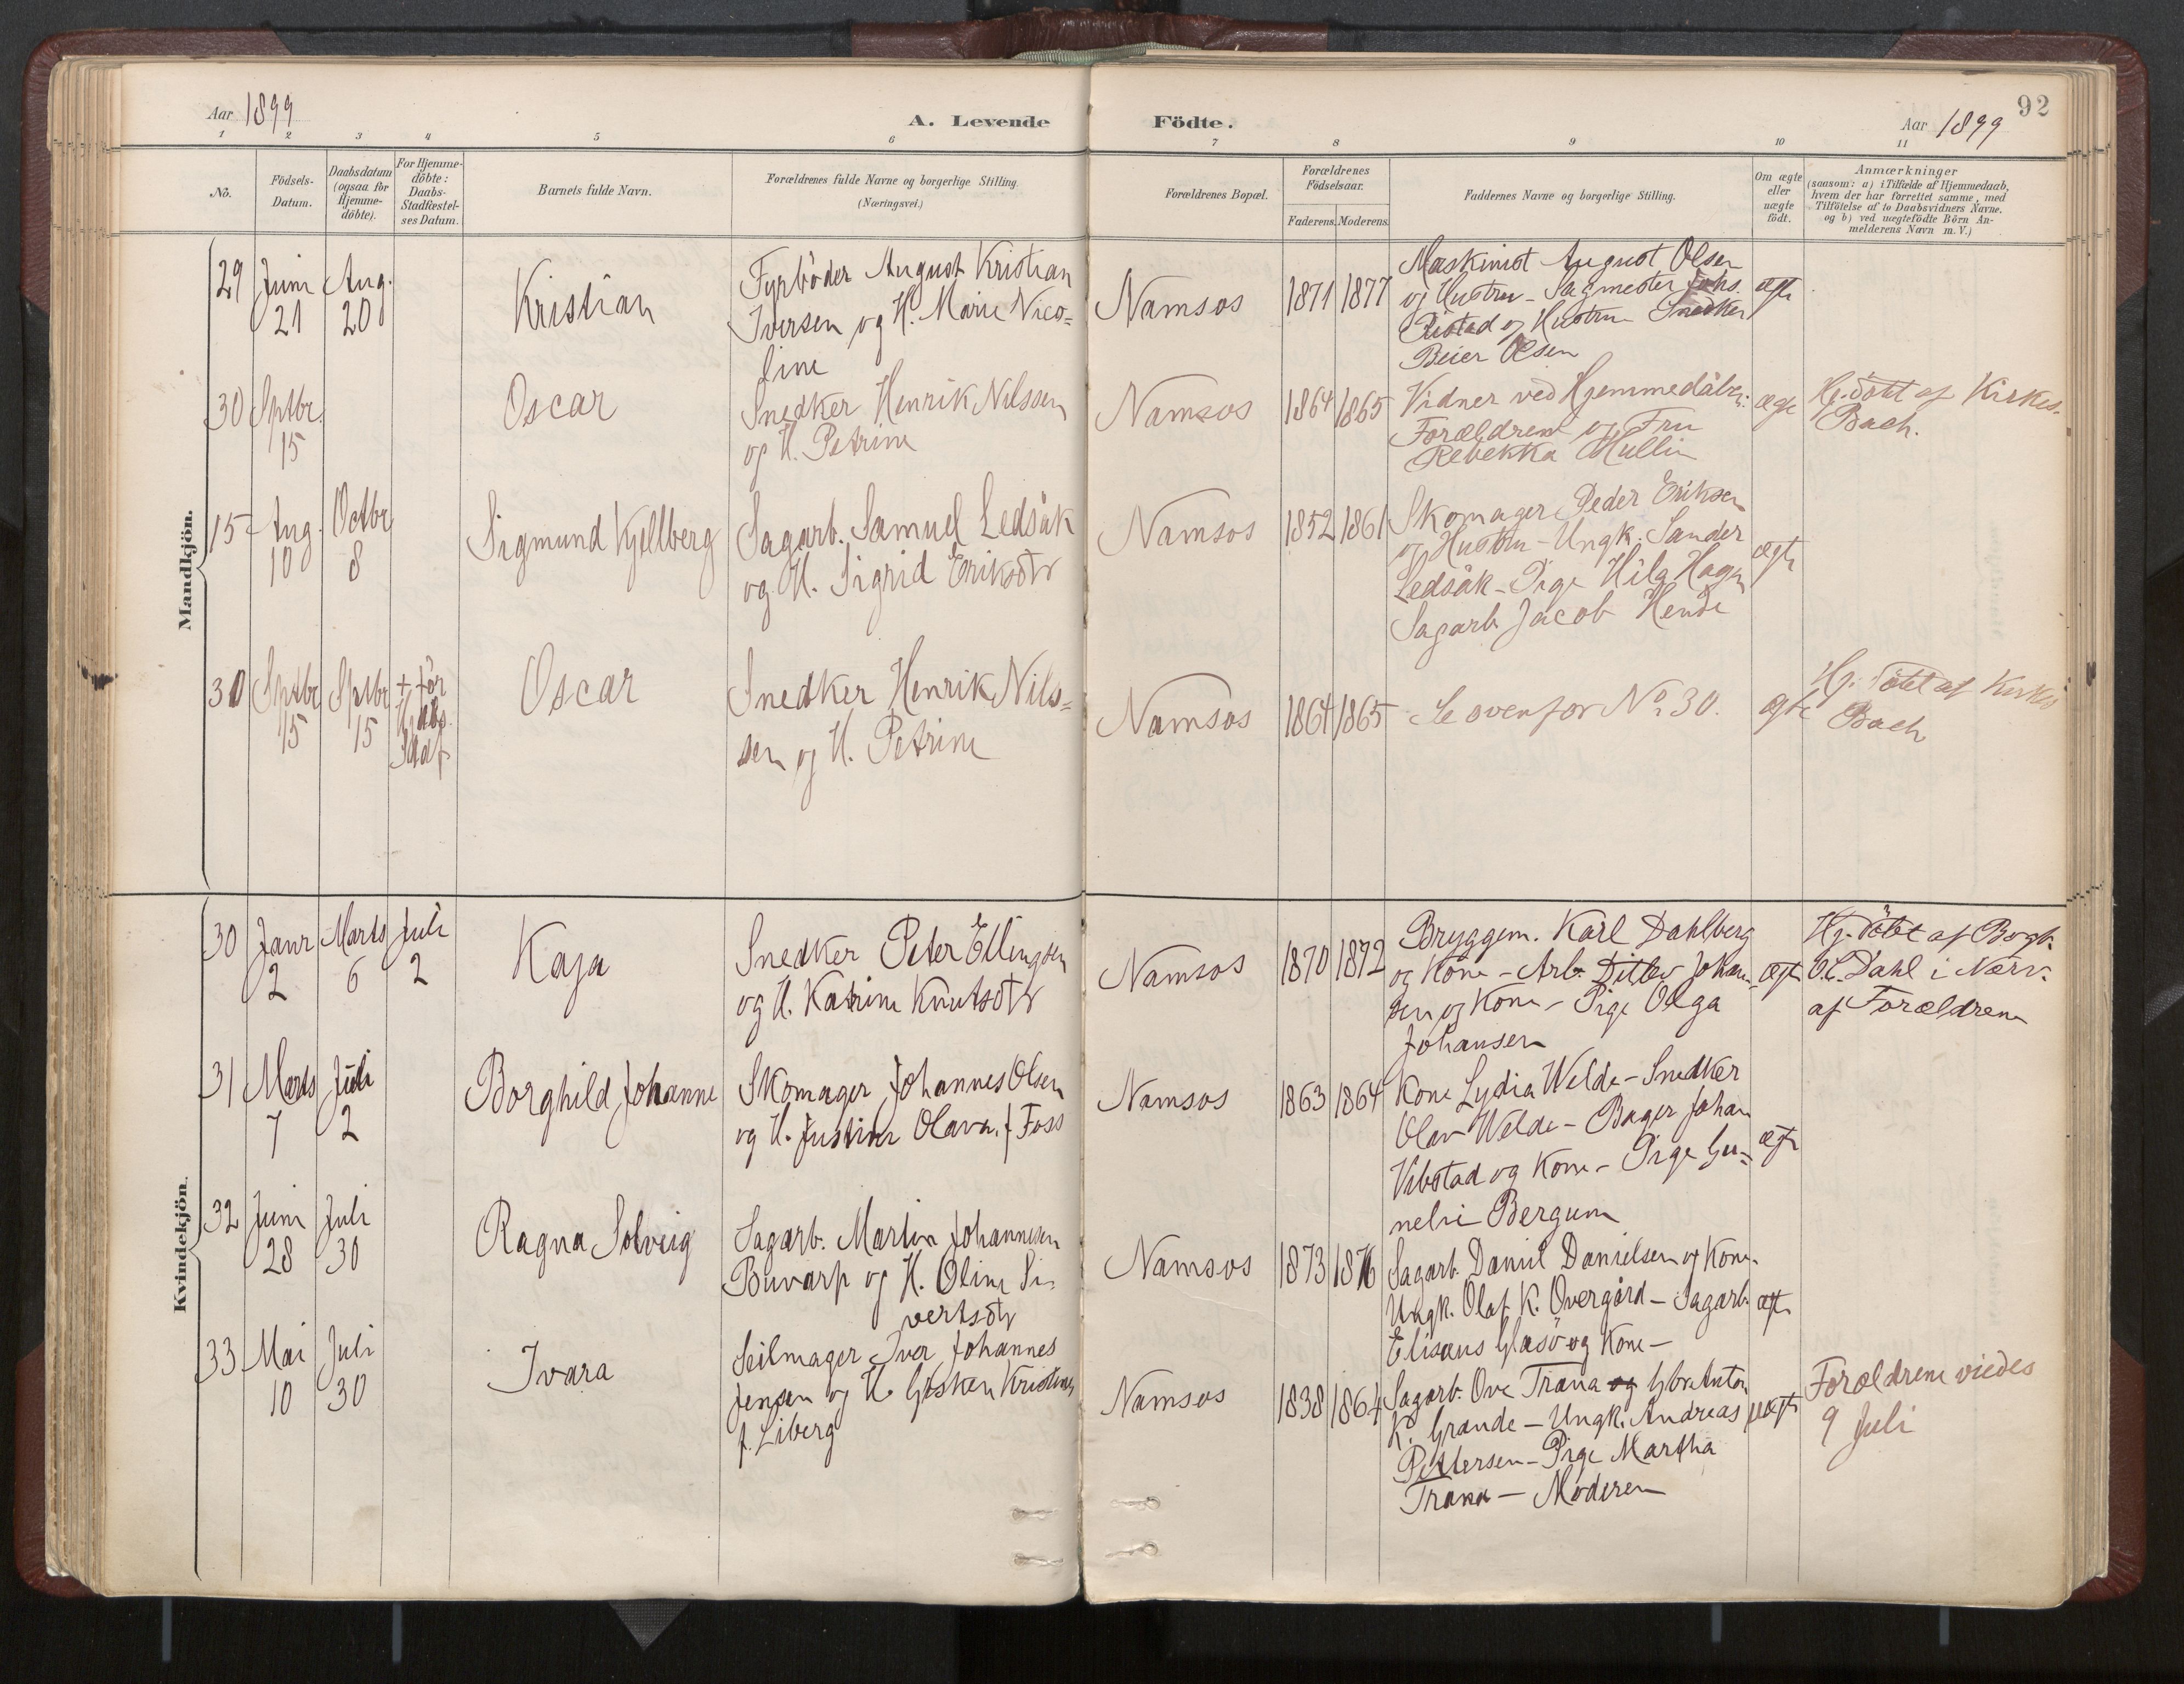 Aar 1899
A. Levende Födte.
Aar 1899
92
1 2 3 4 5 6 7 8 9 10 11
No.
Födsels-
Datum.
Daabsdatum
(ogsaa for
Hjemme-
döbte).
For Hjemme-
döbte:
Daabs-
Stadfæstel-
ses Datum.
Barnets fulde Navn.
Forældrenes fulde Navne og borgerlige Stilling.
(Næringsvei.)
Forældrenes Bopæl.
Forældrenes
Födselsaar.
Faderens. Moderens.
Faddernes Navne og borgerlige Stilling.
Om ægte
eller
uægte
födt.
Anmærkninger
(saasom: a) i Tilfælde af Hjemmedaab,
hvem der har forrettet samme, med
Tilföielse af to Daabsvidners Navne,
og b) ved uægtefödte Börn An-
melderens Navn m.V.)
Mandkjön.
29
Juni
21
Aug.
20
Kristian
Fyrböder August Kristian
Iversen og H. Marie Nico=
line
Namsos
1871 1877
Maskinist August Olsen
og Hustru - Sagmester Johs.
og Hustru Snedker
Beier Olsen
ægte
30
Sptbr.
15
Oscar
Snedker Henrik Nilssen
og H. Petrine
Namsos
1864 1865
Vidner ved Hjemmedåben:
Forældrene og Fru
Rebekka Mullin
ægte
Hj. döbt af Kirkes.
Bach.
15
Aug.
10
Octbr
8
Sigmund Kjellberg
Sagarb. Samuel Ledsåk
og H. Sigrid Eriksdtr
Namsos
1852 1861
Skomager Peder Eriksen
og Hustru - Ungk. Sander
Ledsåk - Pige Hilg Hagen
Sagarb. Jacob
ægte
30
Sptbr
15
Sptbr
15
+ för
Oscar
Snedker Henrik Nils=
sen og H. Petrine
Namsos
1864 1865
Se ovenfor No. 30.
ægte
Hj. döbt af Kirkes
Bach
Kvindekjön.
30
Janr
2
Marts
6
Juli
2
Kaja
Snedker Peter Ellingsen
og H. Katrine Knutsdtr
Namsos
1870 1872
Bryggem. Karl Dahlberg
og Kone - Arb. Ditlev Johan-
sen og Kone - Pige Olga
Johansen
ægte
Hj. döbt af Bogh.
O.C. Dahl i Nærv.
af Forældrene
31
Marts
7
Juli
2
Borghild Johanne
Skomager Johannes Olsen
og H. Justine Olava f. Foss
Namsos
1863 1864
Kone Lydia Welde - Snedker
Olav Welde - Bager Johan
Vibstad og Kone - Pige Gu=
nelie Bergum
ægte
32
Juni
28
Juli
30
Ragna Solveig
Sagarb. Martin Johannesen
Buvarp og H. Oline Si-
vertsdtr
Namsos
1873 1876
Sagarb. Daniel Danielsen og Kone.
Ungk. Olaf K. Overgård - Sagarb.
Elisæus Glasö og Kone -
ægte
33
Mai
10
Juli
30
Ivara
Seilmager Iver Johannes
Jensen og H. Gjøsken Kristine
f. Liberg
Namsos
1838 1864
Sagarb. Ove Trana og Gbr. Anton
K. Grande - Ungk. Andreas
Pettersen - Pige Martha
Trana - Moderen
uægte
Forældrene viedes
9 Juli